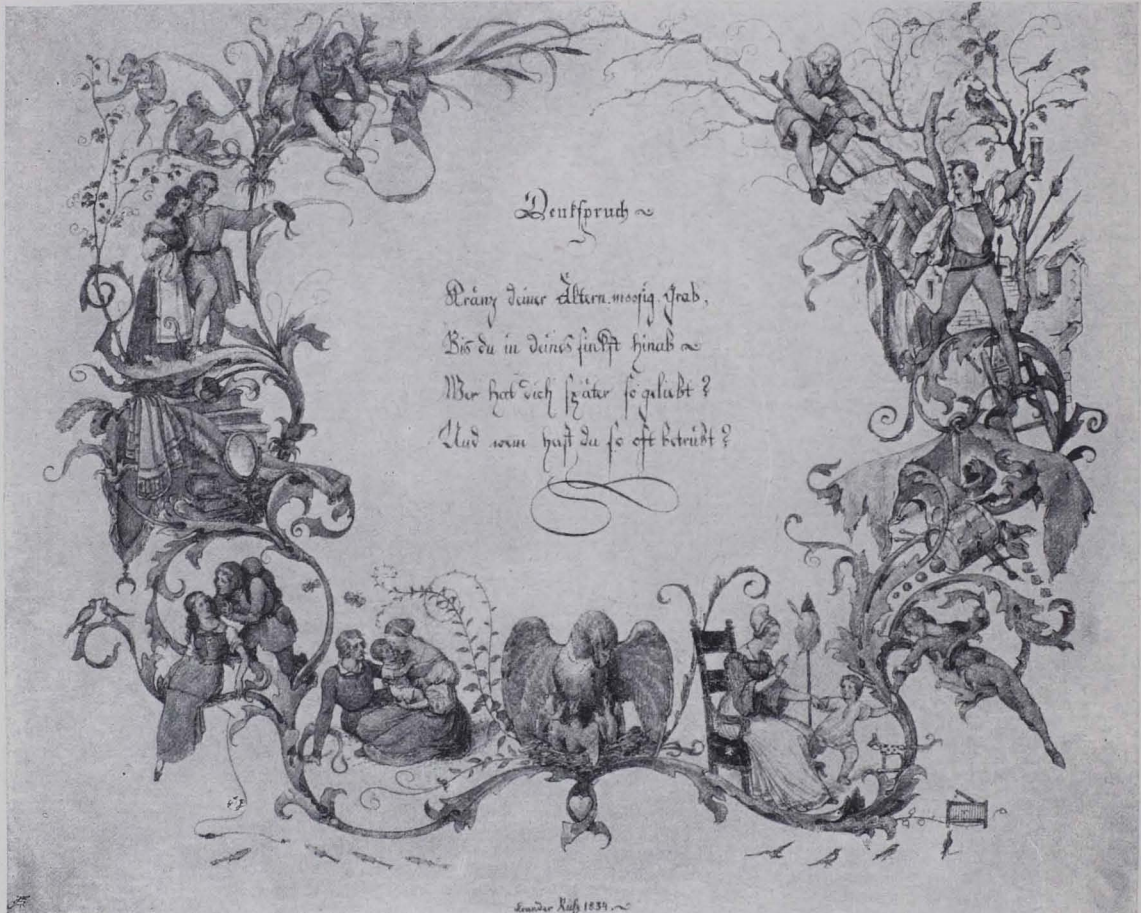 Denkspruch ~
Kränz deiner Ältern moosig Grab,
Bis du in deines sinkst hinab ~
Wer hat dich später so geliebt?
Und wem hast du so oft betrübt?
Leander Ruß 1834. ~